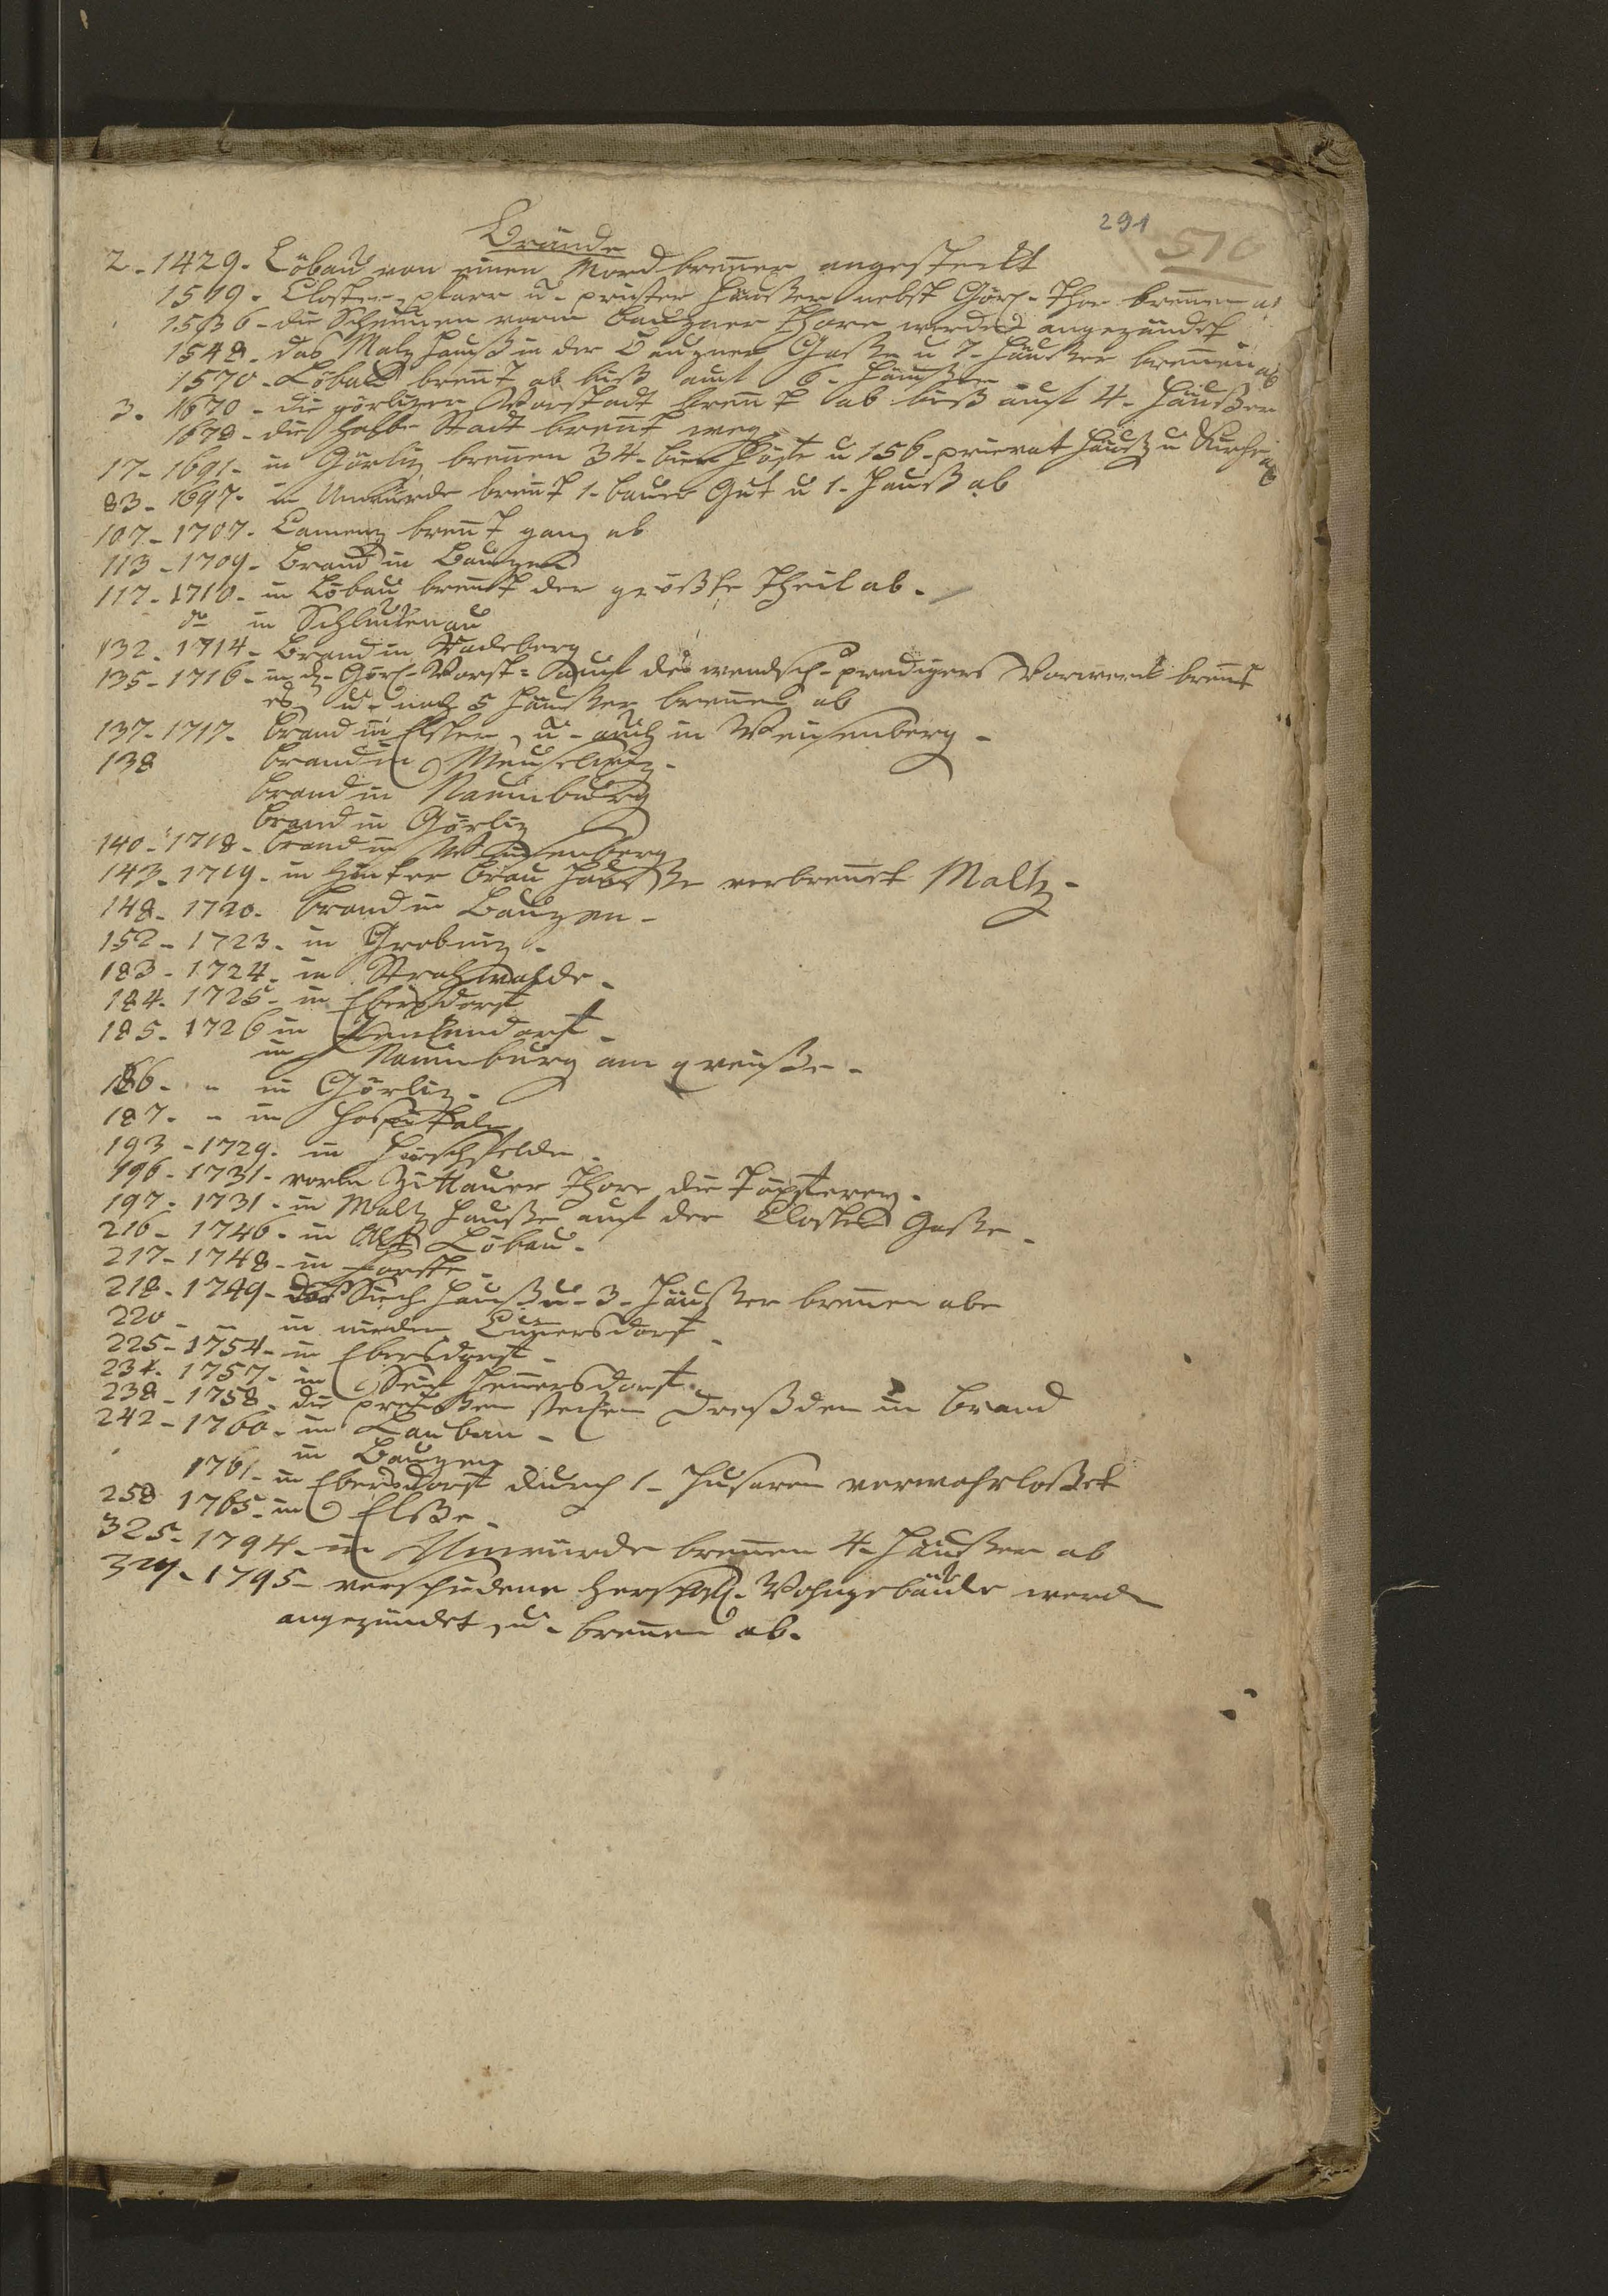 291
510
Brände
2. 1429. Löbau von einen Mord brener angesteckt
1519. Closter, pfarr u. priester Häußer nebst Görl. Thor brenen ab
1536 - die Scheunen vorm Bauzner Thore werden angezündet
1548. das Malz Hauß in der Bauzner Gaße u 7. Häußer brenen ab
1570 - Löbau brent ab biß auf 6. Häußer
3. 1670 - die görlizer Vorstadt brent ab biß auf 4. Häußer
1678 - die halbe Stadt brent weg
17 - 1691 - in Görliz brenen 34. bier Höfe u 156. privat Häuß u Kirche ab
83 - 1697. in Unwürde brent 1. bauer Gut u 1. Hauß ab
107 - 1707. Camenz brent ganz ab
113 - 1709 - Brand in Bauzen
117 - 1710. in Löbau brent der größte Theil ab.
do in Schluckenau
132. 1714 - Brand in Radeberg
135 - 1716 - in d. Görl. Vorst: auf des wendsch. predigers Vorwerck brent
es u. noch 5 Häußer brenen ab
137 - 1717. Brand in Elster, u. auch in Weisenberg -
138 brand in Meuselwiz.
brand in Naumburg
brand in Görliz
140 - 1718 - brand in Weisenberg
143. 1719. in Hinter Brau Hauße verbrent Maltz -
148. 1720. brand in Bauzen -
152 - 1723. in Grobniz.
183 - 1724. in Strahwalde.
184. 1725 - in Ebersdorf
185 - 1726 in
in Naumburg am qveiße.
186 - " in Görliz.
187. - in Hospitale
193 - 1729. in Hirschfelde.
196 - 1731 - vorm Zittauer Thore die Töpferey.
197. 1731 - in Maltz Hauße auf der Closter Gaße.
216 - 1746. in Alt Löbau.
217 - 1748 - in Forste
218 - 1749 - das Siech Hauß u. 3. Häußer brenen abe
220 - - in nieder Cunersdorf
225 - 1754 - in Ebersdorf -
234. 1757. in Seif Henersdorf.
238 - 1758. die preußen stecken Dreßden in Brand
242 - 1760. in Lauban -
in Bauzen
1761 - in Ebersdorf durch 1. Husaren verwahrloßet
258 1765 - in Elße.
325 - 1794. in Unwürde brenen 4. Häußer ab
- 1795 - verschiedene Wohngebäude werden
angezündet, u. brenen ab.